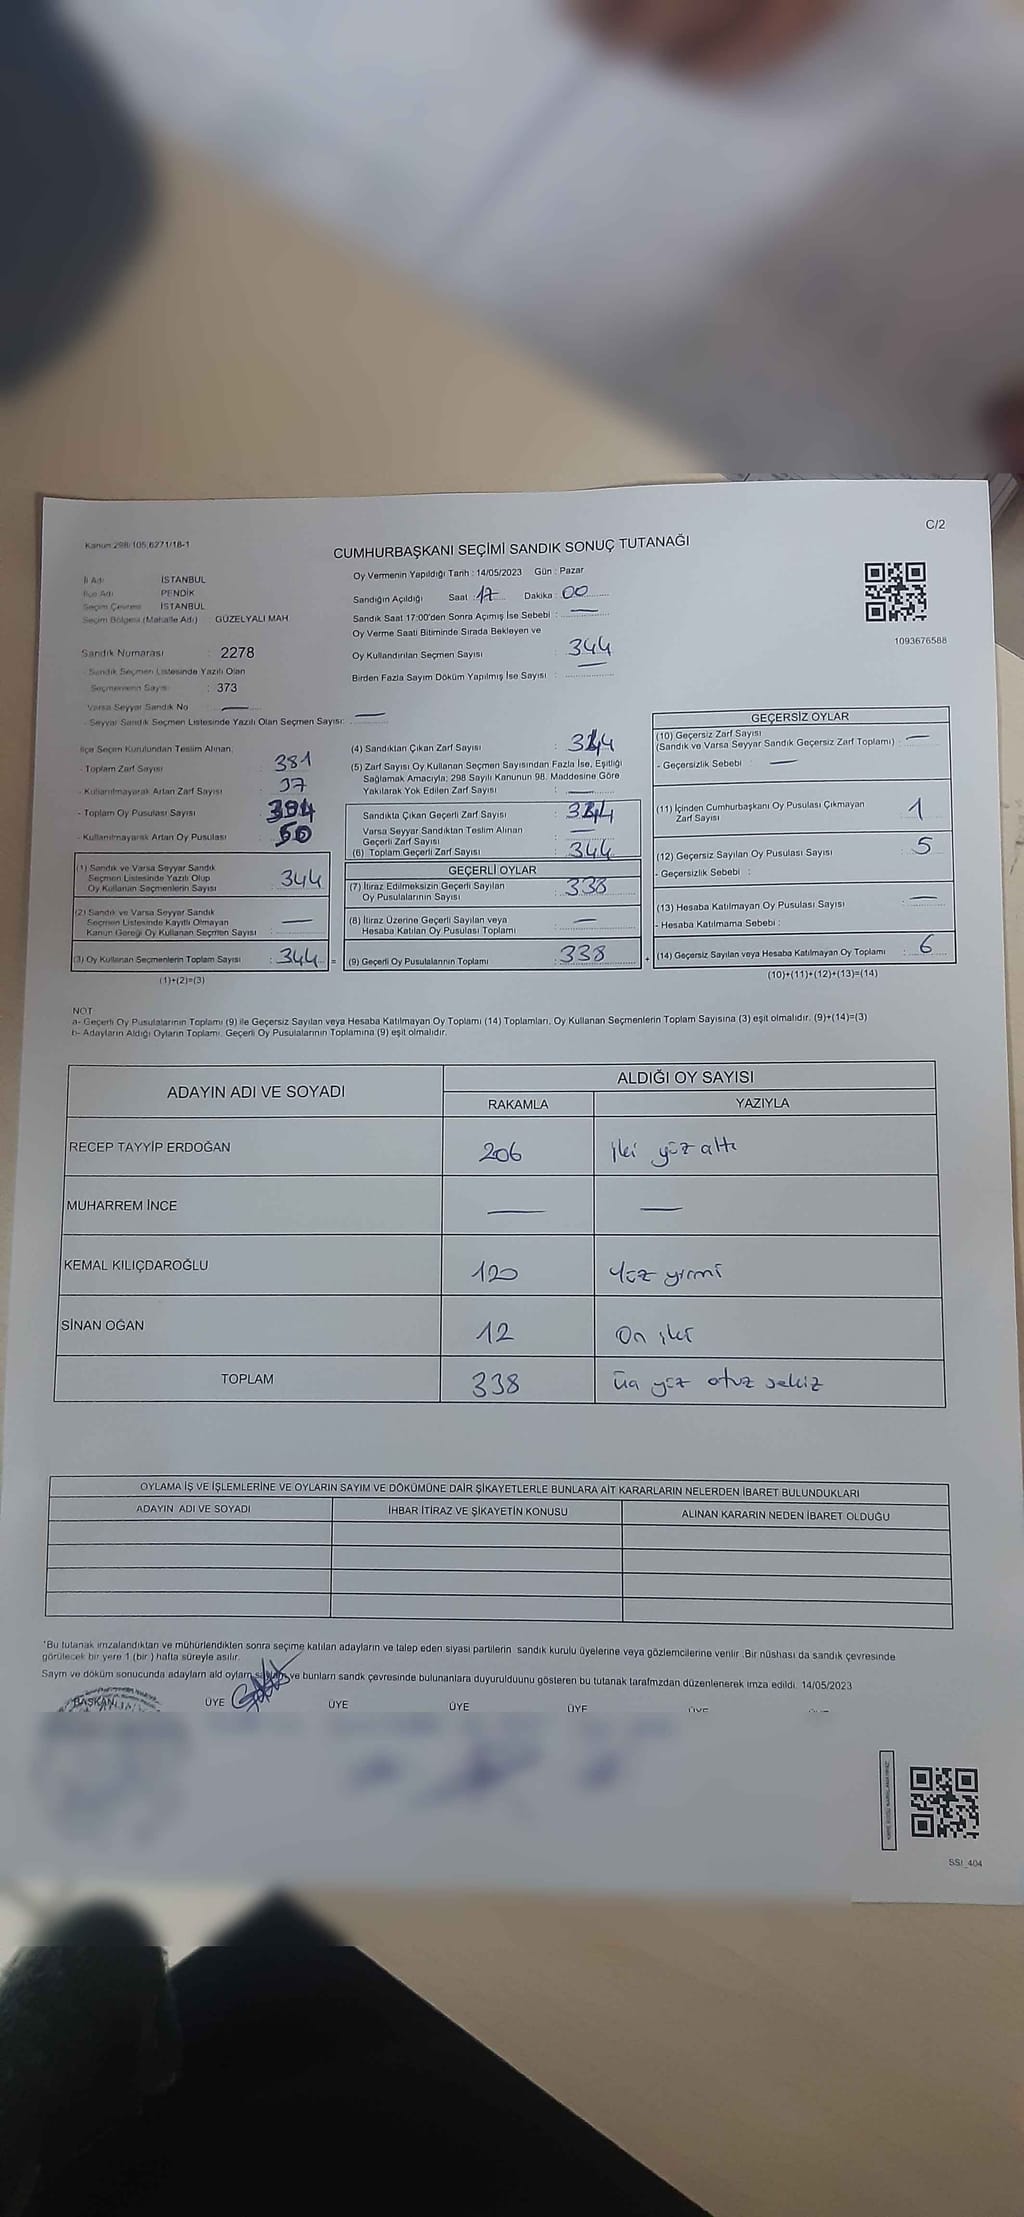 C/2
Kanun:298/105;6271/18-1
CUMHURBAŞKANI SEÇİMİ SANDIK SONUÇ TUTANAĞI
İl Adı : İSTANBUL
İlçe Adı : PENDİK
Seçim Çevresi : İSTANBUL
Seçim Bölgesi (Mahalle Adı) : GÜZELYALI MAH.
Sandık Numarası : 2278
- Sandık Seçmen Listesinde Yazılı Olan
Seçmenlerin Sayısı : 373
Varsa Seyyar Sandık No : —
- Seyyar Sandık Seçmen Listesinde Yazılı Olan Seçmen Sayısı: —
Oy Vermenin Yapıldığı Tarih : 14/05/2023 Gün : Pazar
Sandığın Açıldığı Saat : 17 Dakika : 00
Sandık Saat 17:00'den Sonra Açımış İse Sebebi : —
Oy Verme Saati Bitiminde Sırada Bekleyen ve
Oy Kullandırılan Seçmen Sayısı : 344
Birden Fazla Sayım Döküm Yapılmış İse Sayısı : —
1093676588
İlçe Seçim Kurulundan Teslim Alınan;
- Toplam Zarf Sayısı : 381
- Kullanılmayarak Artan Zarf Sayısı : 37
- Toplam Oy Pusulası Sayısı : 394
- Kullanılmayarak Artan Oy Pusulası : 50
(1) Sandık ve Varsa Seyyar Sandık
Seçmen Listesinde Yazılı Olup
Oy Kullanan Seçmenlerin Sayısı : 344
(2) Sandık ve Varsa Seyyar Sandık
Seçmen Listesinde Kayıtlı Olmayan
Kanun Gereği Oy Kullanan Seçmen Sayısı : —
(3) Oy Kullanan Seçmenlerin Toplam Sayısı : 344 =
(1)+(2)=(3)
(4) Sandıktan Çıkan Zarf Sayısı : 344
(5) Zarf Sayısı Oy Kullanan Seçmen Sayısından Fazla İse, Eşitliği
Sağlamak Amacıyla; 298 Sayılı Kanunun 98. Maddesine Göre
Yakılarak Yok Edilen Zarf Sayısı : —
Sandıkta Çıkan Geçerli Zarf Sayısı : 344
Varsa Seyyar Sandıktan Teslim Alınan
Geçerli Zarf Sayısı : —
(6) Toplam Geçerli Zarf Sayısı : 344
GEÇERLİ OYLAR
(7) İtiraz Edilmeksizin Geçerli Sayılan
Oy Pusulalarının Sayısı : 338
(8) İtiraz Üzerine Geçerli Sayılan veya
Hesaba Katılan Oy Pusulası Toplamı : —
(9) Geçerli Oy Pusulalarının Toplamı : 338 +
GEÇERSİZ OYLAR
(10) Geçersiz Zarf Sayısı
(Sandık ve Varsa Seyyar Sandık Geçersiz Zarf Toplamı) : —
- Geçersizlik Sebebi : —
(11) İçinden Cumhurbaşkanı Oy Pusulası Çıkmayan
Zarf Sayısı : 1
(12) Geçersiz Sayılan Oy Pusulası Sayısı : 5
- Geçersizlik Sebebi :
(13) Hesaba Katılmayan Oy Pusulası Sayısı : —
- Hesaba Katılmama Sebebi :
(14) Geçersiz Sayılan veya Hesaba Katılmayan Oy Toplamı : 6
(10)+(11)+(12)+(13)=(14)
NOT
a- Geçerli Oy Pusulalarının Toplamı (9) ile Geçersiz Sayılan veya Hesaba Katılmayan Oy Toplamı (14) Toplamları, Oy Kullanan Seçmenlerin Toplam Sayısına (3) eşit olmalıdır. (9)+(14)=(3)
b- Adayların Aldığı Oyların Toplamı, Geçerli Oy Pusulalarının Toplamına (9) eşit olmalıdır.
ADAYIN ADI VE SOYADI ALDIĞI OY SAYISI
RAKAMLA YAZIYLA
RECEP TAYYİP ERDOĞAN 206 iki yüz altı
MUHARREM İNCE — —
KEMAL KILIÇDAROĞLU 120 Yüz yirmi
SİNAN OĞAN 12 On iki
TOPLAM 338 üç yüz otuz sekiz
OYLAMA İŞ VE İŞLEMLERİNE VE OYLARIN SAYIM VE DÖKÜMÜNE DAİR ŞİKAYETLERLE BUNLARA AİT KARARLARIN NELERDEN İBARET BULUNDUKLARI
ADAYIN ADI VE SOYADI İHBAR İTİRAZ VE ŞİKAYETİN KONUSU ALINAN KARARIN NEDEN İBARET OLDUĞU
*Bu tutanak imzalandıktan ve mühürlendikten sonra seçime katılan adayların ve talep eden siyasi partilerin sandık kurulu üyelerine veya gözlemcilerine verilir. Bir nüshası da sandık çevresinde
görülecek bir yere 1 (bir ) hafta süreyle asılır.
Saym ve döküm sonucunda adaylarn ald oylarn ve bunlarn sandk çevresinde bulunanlara duyurulduunu gösteren bu tutanak tarafmzdan düzenlenerek imza edildi. 14/05/2023
BAŞKAN ÜYE ÜYE ÜYE ÜYE
SSİ_404